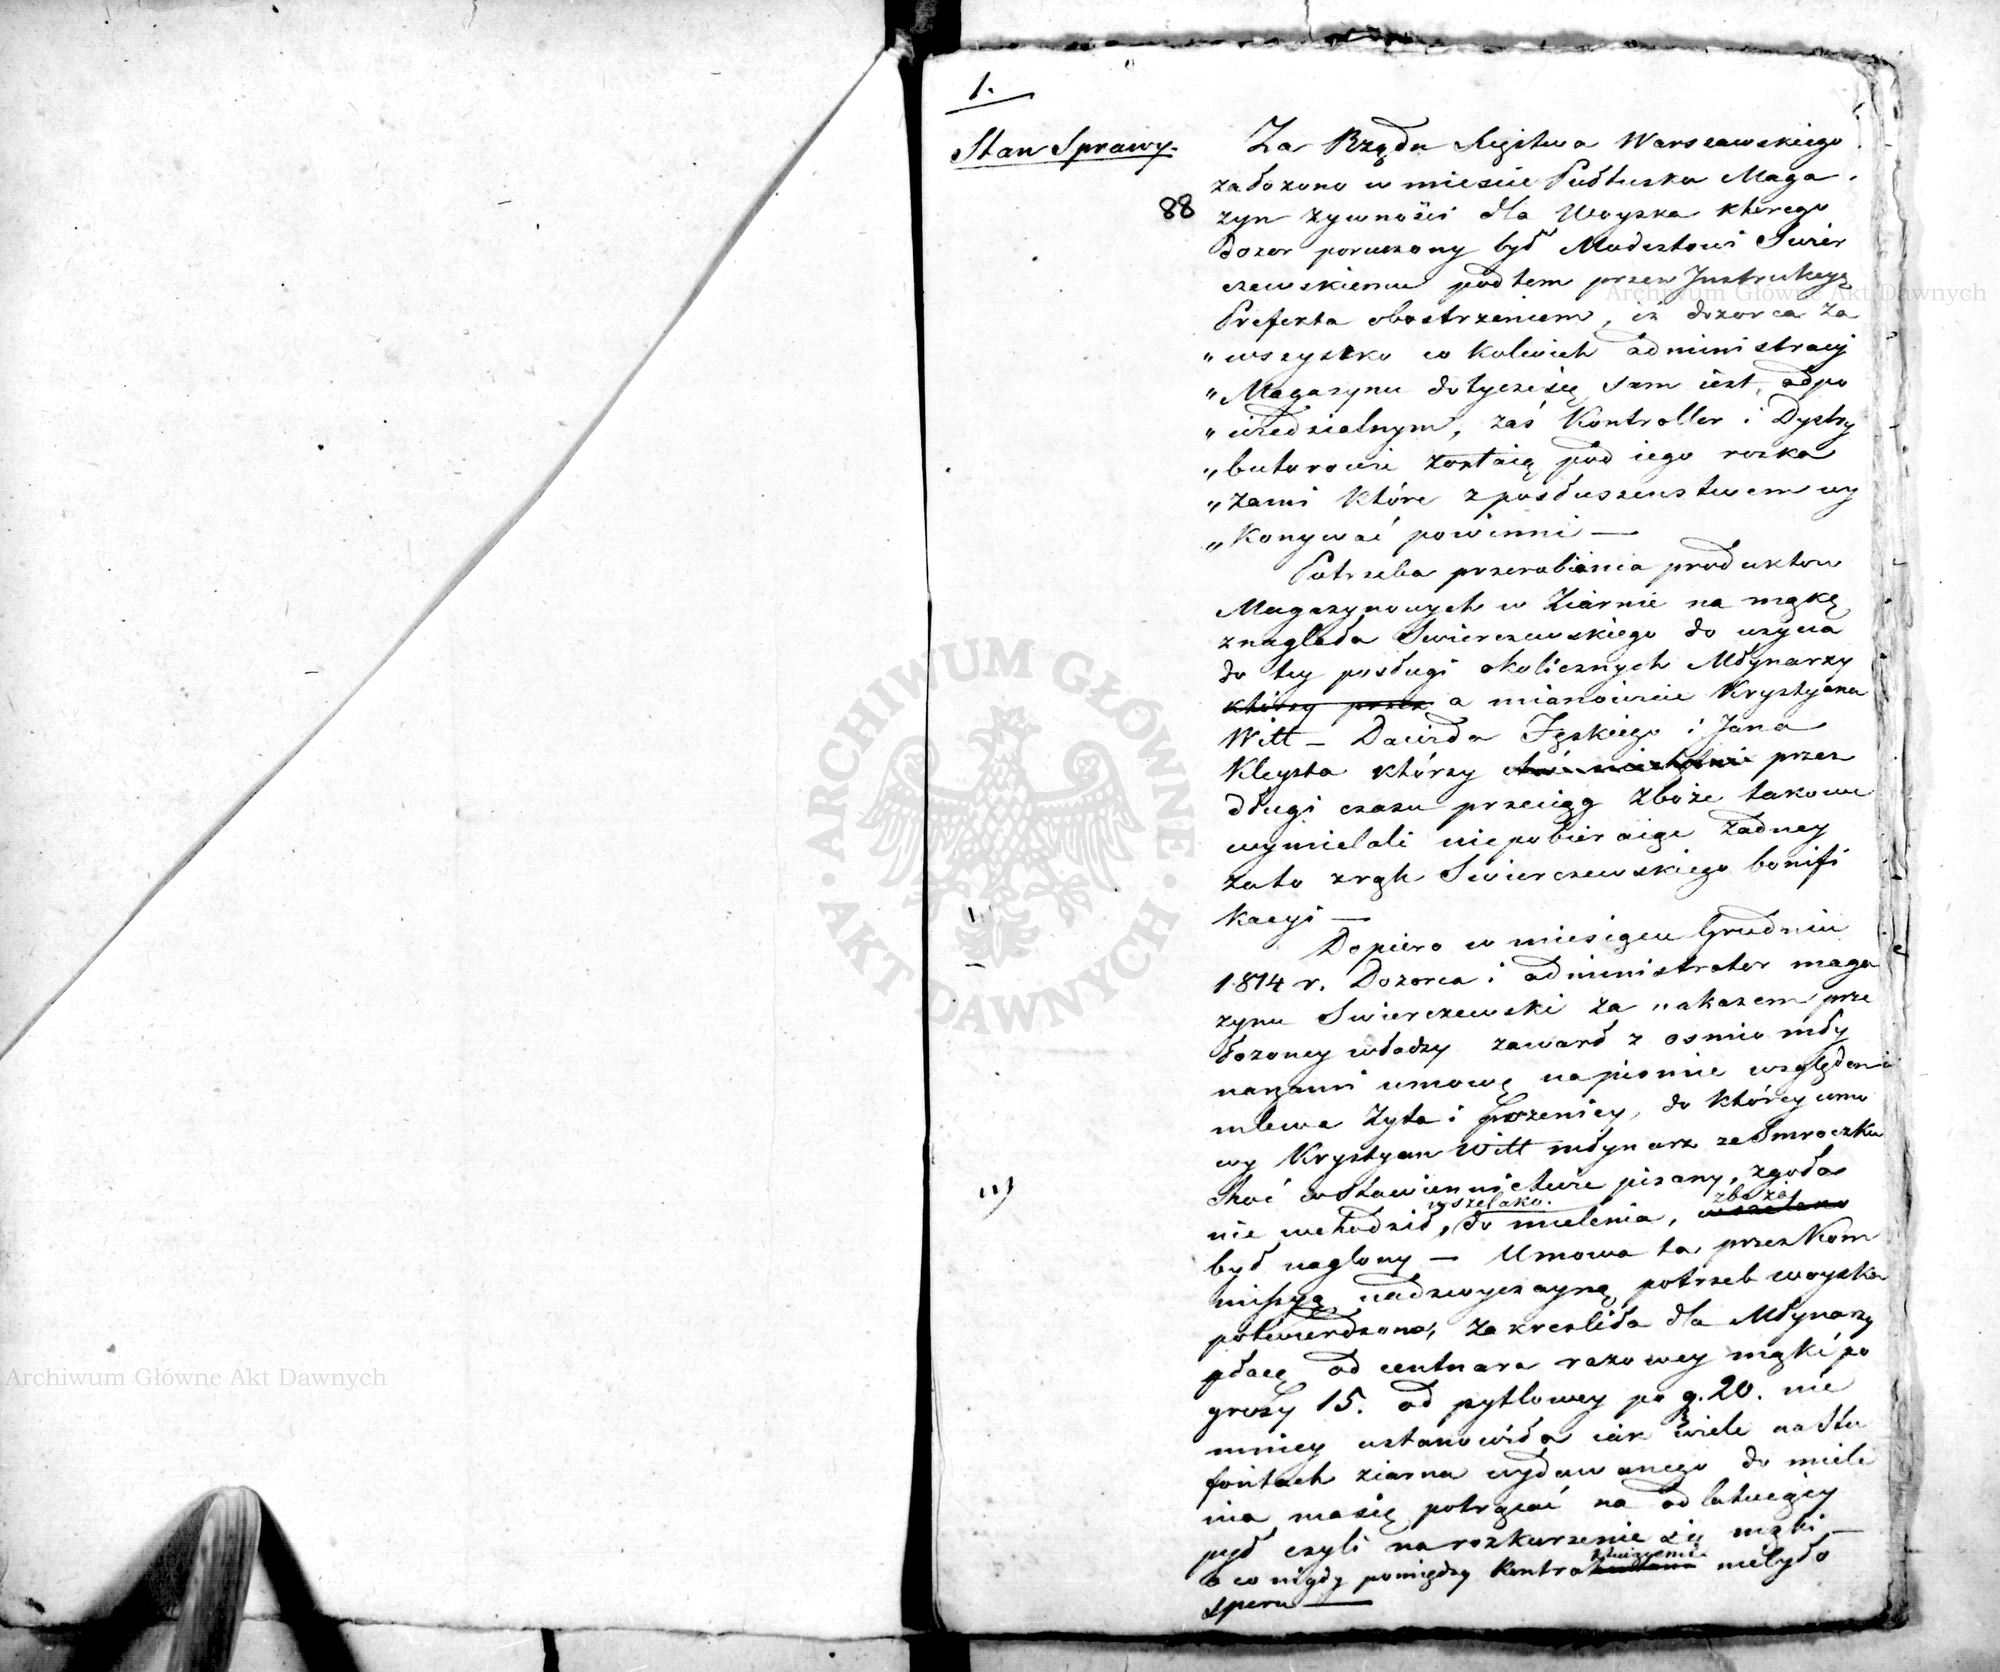 1.
Stan Sprawy.
88
Za Rządu Xięstwa Warszawskiego
założono w mieście Pułtusku Maga
zyn żywności dla Woyska którego
dozor poruczony był Modestowi Swier
czewskiemu pod tem przez Instrukcyą
Prefekta obostrzeniem, iż dozorca za
„wszystko w kolwiek administracyi
„Magazynu dotycze się sam iest, odpo
„wiedzialnym, zaś Kontroller i Dystry
„butorowie zostaią pod iego rozka
„zami które z posłuszeństwem wy
„konywać powinni —
Potrzeba przerobienia produktow
Magazynowych w ziarnie na mąkę
znagliła Swierczewskiego do użycia
do tey posługi okolicznych Młynarzy
którzy przez a mianowicie Krystyana
Witt – Dawida Ięskiego i Jana
Kleysta którzy przez
długi czasu przeciąg zboże takowe
wymielali niepobieraiąc żadney
zato z rąk Swierczewskiego bonifi
kacyi —
Dopiero w miesiącu Grudniu
1814 r. Dozorca i administrator maga
zynu Swierczewski za nakazem prze
łożoney władzy zawarł z osmio mły
narzami umowę na pismie względem
mlewa żyta i pszenicy, do którey umo
wy Krystyan Witt młynarz ze Smroczku
choć w stawiennictwie pisany, zgoła
nie wchodził, do mielenia,
wszelako zboża
wszelako
był naglony — Umowa ta przez Kom
missyą nadzwyczayną potrzeb woyska
potwierdzona, zakreśliła dla Młynarzy
płacę od centnara razowey mąki po
groszy 15. od pytlowey po g. 20. nie
mniey ustanowiła iak wiele na stu
funtach ziarna wydawanego do miele
nia ma się potrącać na odlatuiący
pył czyli na rozkurzenie się mąki —
o co nigdy pomiędzy Kontra niebyło
sporu —
Archiwum Główne Akt Dawnych
ARCHIWUM GŁÓWNE · AKT DAWNYCH ·
Archiwum Główne Akt Dawnych